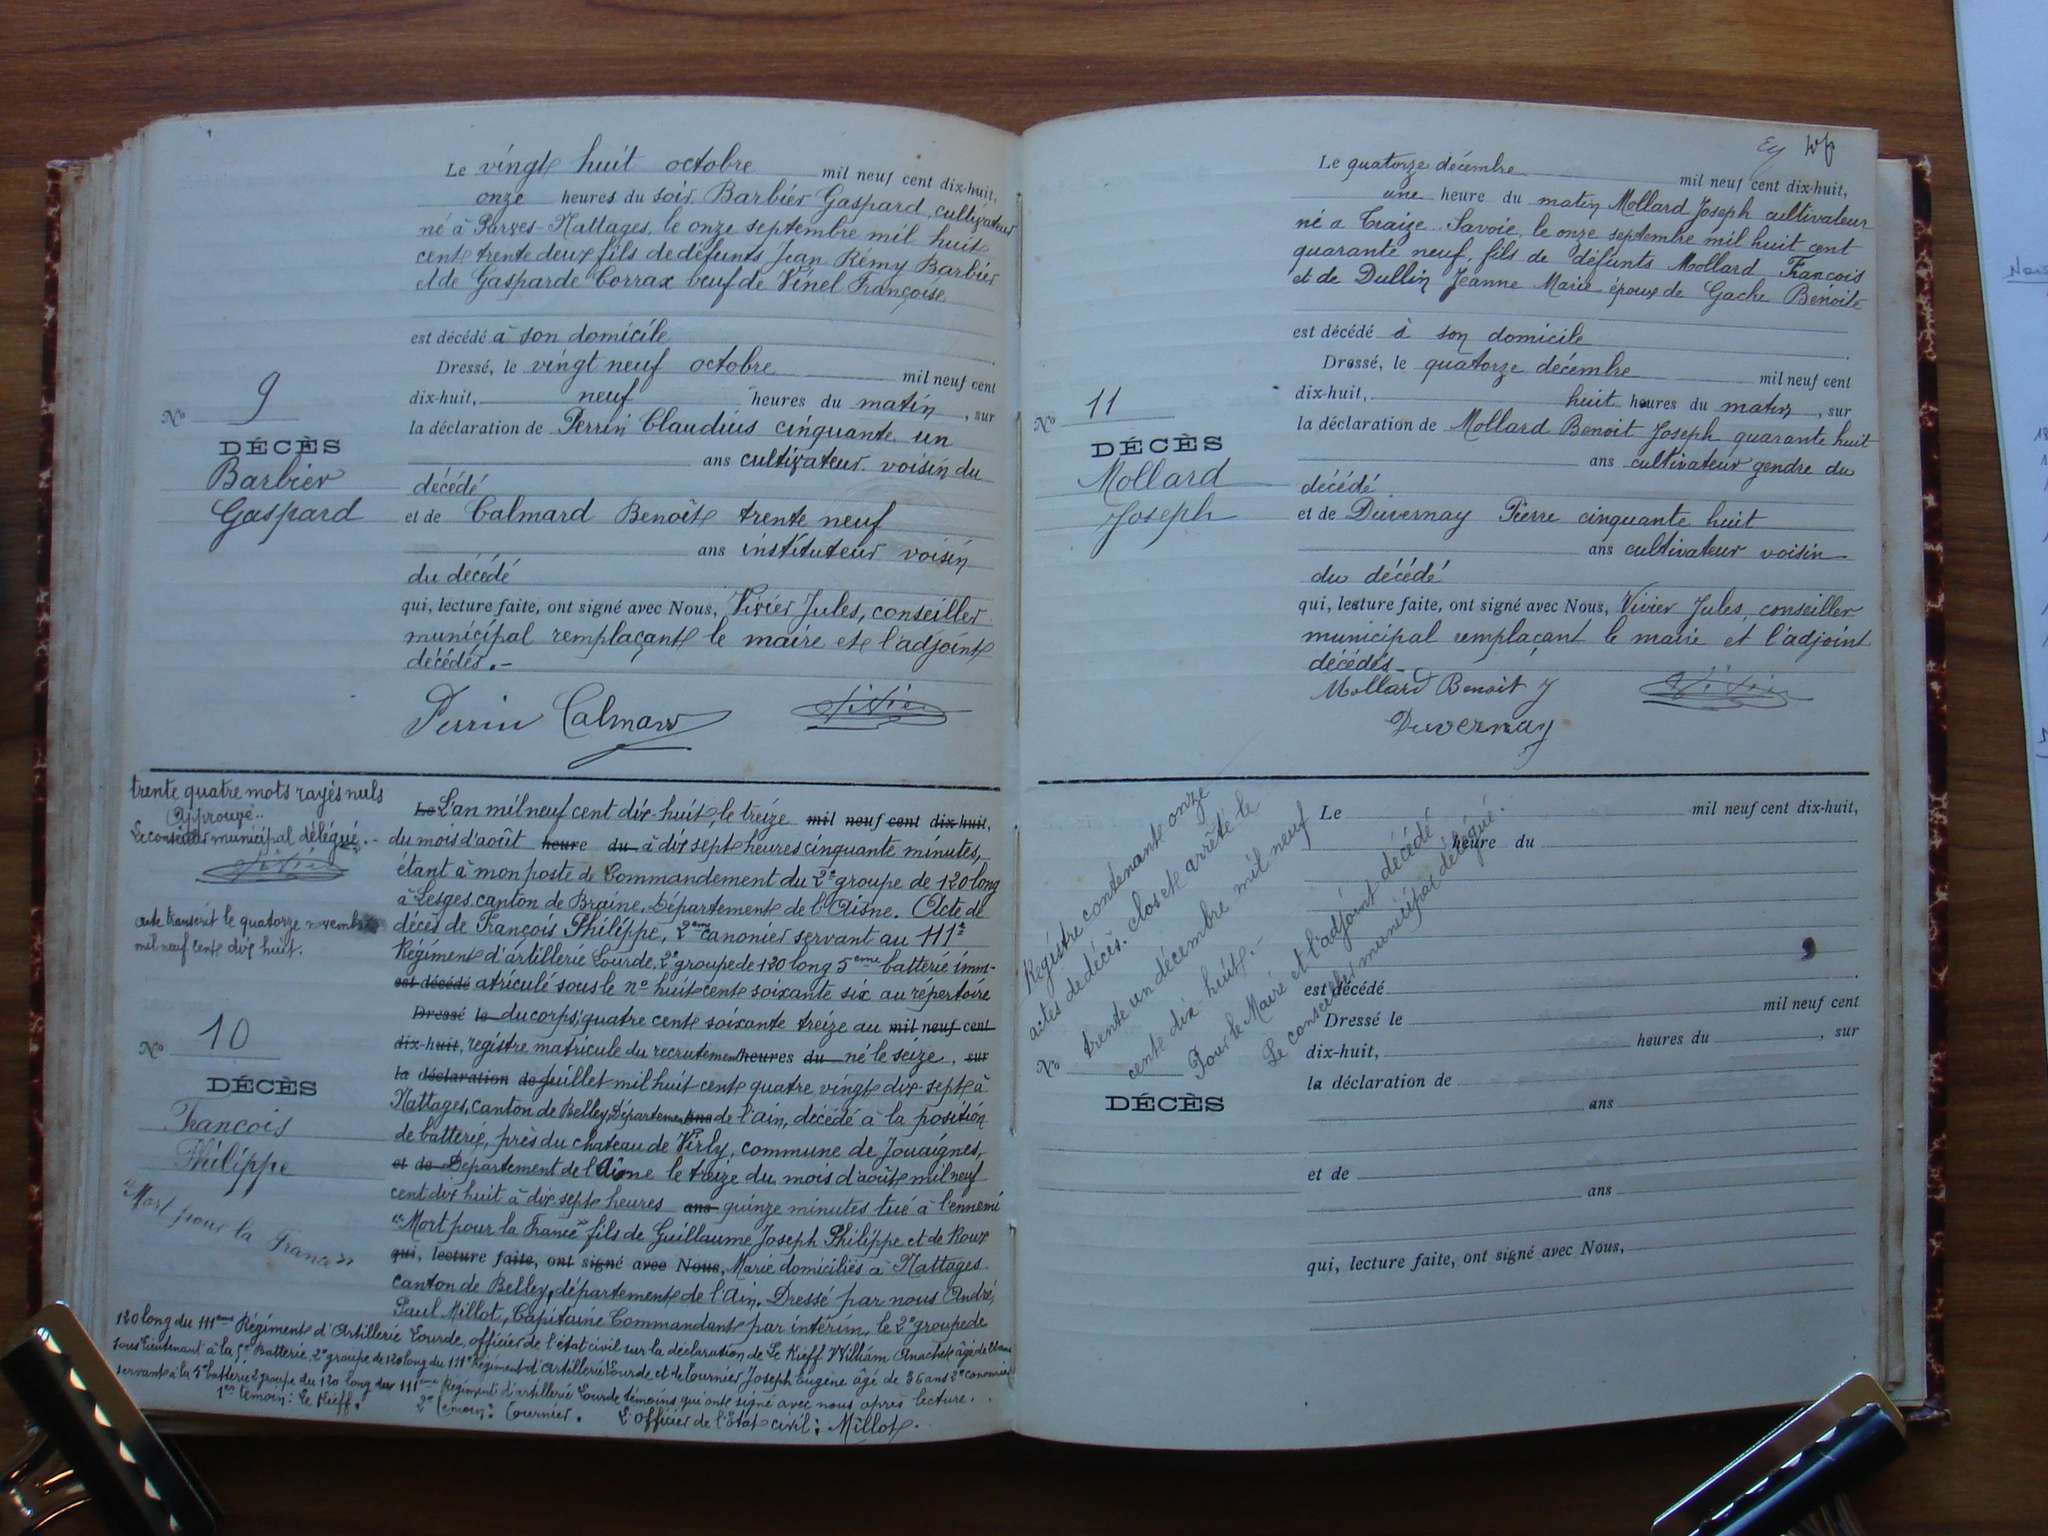 Le vingt huit octobre mil neuf cent dix-huit,
onze heures du soir Barbier Gaspard, cultivateur
né à Parves-Nattages, le onze septembre mil huit
cent trente deux fils de défunts Jean Remy Barbier
et de Gasparde Corrax veuf de Vinel Françoise
est décédé à son domicile
Dressé, le vingt neuf octobre mil neuf cent
dix-huit, neuf heures du matin, sur
la déclaration de Perrin Claudius cinquante un
ans cultivateur voisin du
décédé
et de Calmard Benoît trente neuf
ans instituteur voisin
du décédé
qui, lecture faite, ont signé avec Nous, Vivier Jules, conseiller
municipal remplaçant le maire et l'adjoint
décédés.-
Perrin Calmard Vivier
No 9
DÉCÈS
Barbier
Gaspard
trente quatre mots rayés nuls
Approuvé..
Le conseiller municipal délégué.-
Vivier
acte transcrit le quatorze novembre
mil neuf cent dix huit.
No 10
DÉCÈS
François
Philippe
"Mort pour la France"
Le L'an mil neuf cent dix-huit, le treize mil neuf cent dix-huit,
du mois d'août heure du à dix sept heures cinquante minutes,
étant à mon poste de Commandement du 2e groupe de 120 long
à Lesges canton de Braine, Département de l'Aisne. Acte de
décès de François Philippe, 2eme canonier servant au 111e
Régiment d'artillerie Lourde, 2e groupe de 120 long 5eme batterie imm-
est décédé atriculé sous le no huit cent soixante six au répertoire
Dressé le du corps; quatre cent soixante treize au mil neuf cent
dix-huit, registre matricule du recrutement heures du né le seize, sur
la déclaration de Juillet mil huit cent quatre vingt dix-sept à
Nattages, canton de Belley, Département ans de l'ain, décédé à la position
de batterie, près du chateau de Virly, commune de Jouaignes,
et de Département de l'Aisne le treize du mois d'août mil neuf
cent dix huit à dix sept heures ans quinze minutes tué à l'ennemi
"Mort pour la France" fils de Guillaume Joseph Philippe et de Roux
qui, lecture faite, ont signé avec Nous, Marie domiciliés à Nattages
canton de Belley, département de l'Ain. Dressé par nous André,
Paul Millot, Capitaine Commandant par intérim, le 2e groupe de
120 long du 111eme Régiment d'Artillerie Lourde, officier de l'état civil sur la déclaration de Le Kieff William Anachet âgé de
sous lieutenant à la 5e Batterie, 2e groupe de 120 long du 111e Régiment d'Artillerie Lourde et de Tournier Joseph Eugène âgé de 36 ans 2e canonnier
servant à la 5e batterie 2 groupe du 120 long du 111eme Régiment d'artillerie Lourde témoins qui ont signé avec nous après lecture.
1er témoin: Le Kieff. 2e témoin: Tournier. L'officier de l'Etat civil: Millot.
Le quatorze décembre mil neuf cent dix-huit,
une heure du matin Mollard Joseph cultivateur
né à Traize Savoie, le onze septembre mil huit cent
quarante neuf, fils de défunts Mollard François
et de Dullin Jeanne Marie époux de Gache Benoite
est décédé à son domicile
Dressé, le quatorze décembre mil neuf cent
dix-huit, huit heures du matin, sur
la déclaration de Mollard Benoit Joseph quarante huit
ans cultivateur gendre du
décédé
et de Duvernay Pierre cinquante huit
ans cultivateur voisin
du décédé
qui, lecture faite, ont signé avec Nous, Vivier Jules, conseiller
municipal remplaçant le maire et l'adjoint
décédés-
Mollard Benoit J Vivier
Duvernay
No 11
DÉCÈS
Mollard
Joseph
Registre contenant onze
actes de décès. clos et arrêté le
trente un décembre mil neuf
cent dix-huit.-
Pour le Maire et l'adjoint décédé
Le conseiller municipal délégué.
No
DÉCÈS
Le mil neuf cent dix-huit,
heure du
est décédé
Dressé le mil neuf cent
dix-huit, heures du , sur
la déclaration de
ans
et de
ans
qui, lecture faite, ont signé avec Nous,